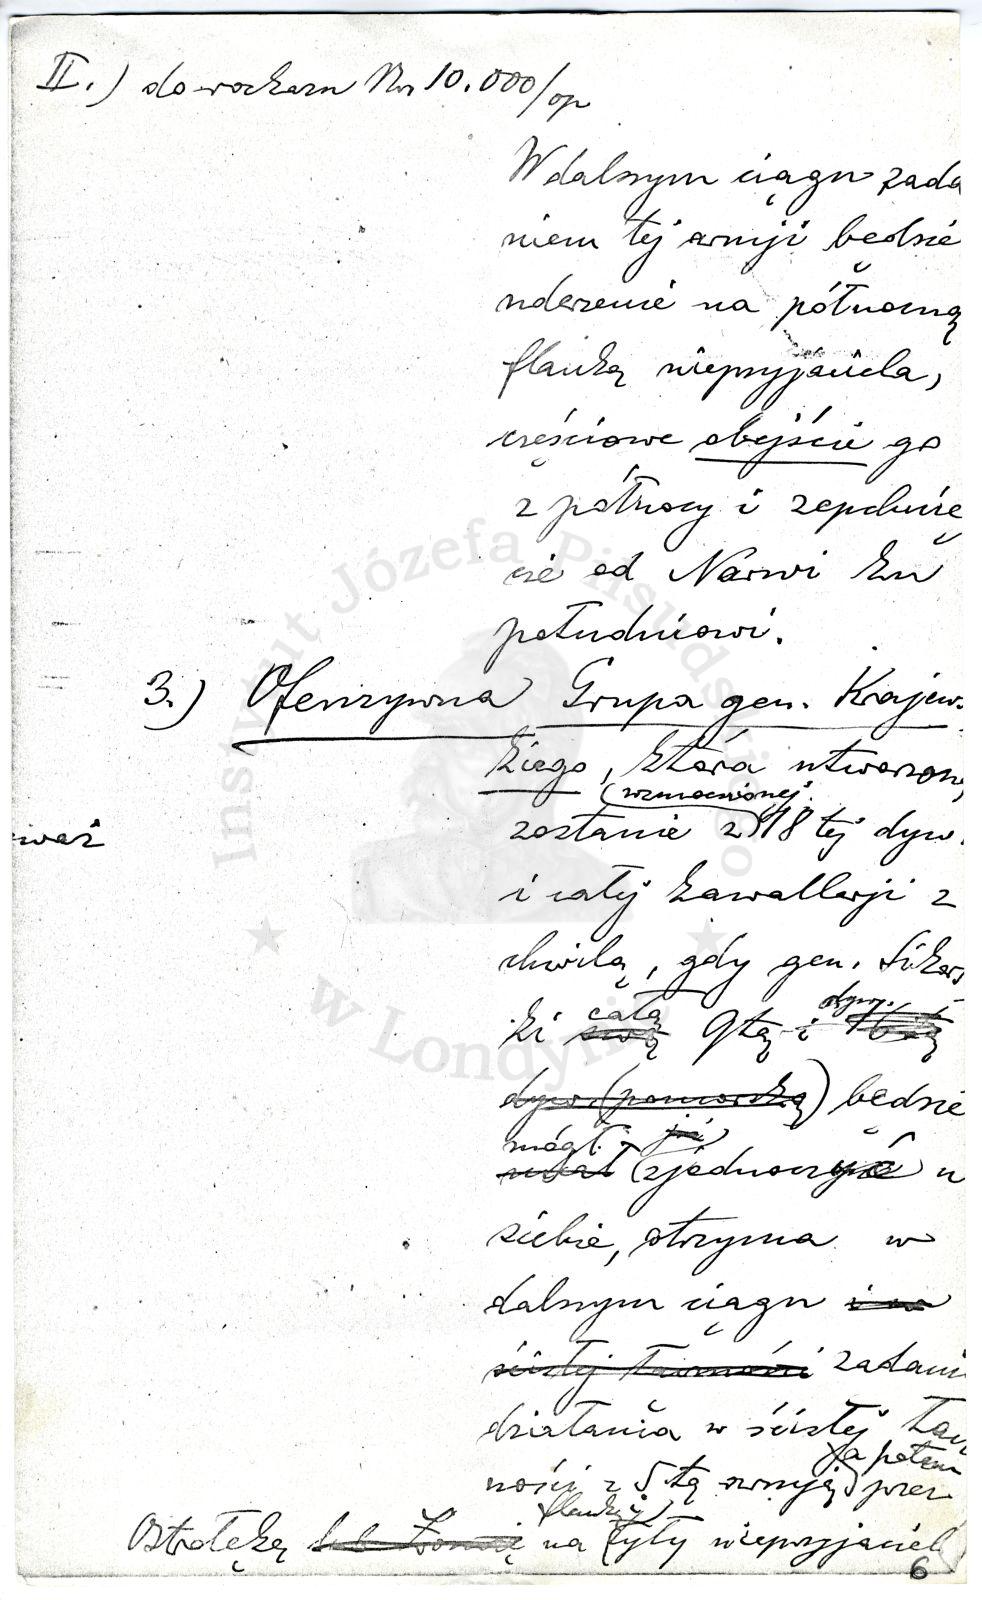 II.) do rozkazu Nr 10.000/op
W dalszym ciągu zada
niem tej armji będzie
uderzenie na północną
flankę nieprzyjaciela,
częściowe obejście go
z północy i zepchnię
cie od Narwi ku
południowi.
3.) Ofenzywna Grupa gen. Krajew.
kiego, która utworzon
(wzmocnionej
zostanie z 18 tej dyw.
i całej kawallerji z
chwilą, gdy gen. Sikors
całą dyw.
ki swą 9tą i
dyw. (pomorską) będzie
mógł już
zjednoczyć u
siebie, otrzyma w
dalszym ciągu i w
ścisłej łączności zadani
działania w ścisłej łącz
a potem
ności z 5tą armją przez
flankę i
Ostrołękę lub Łomżę na tyły nieprzyjaciel
waż
6
Instytut Józefa Piłsudskiego
w Londynie